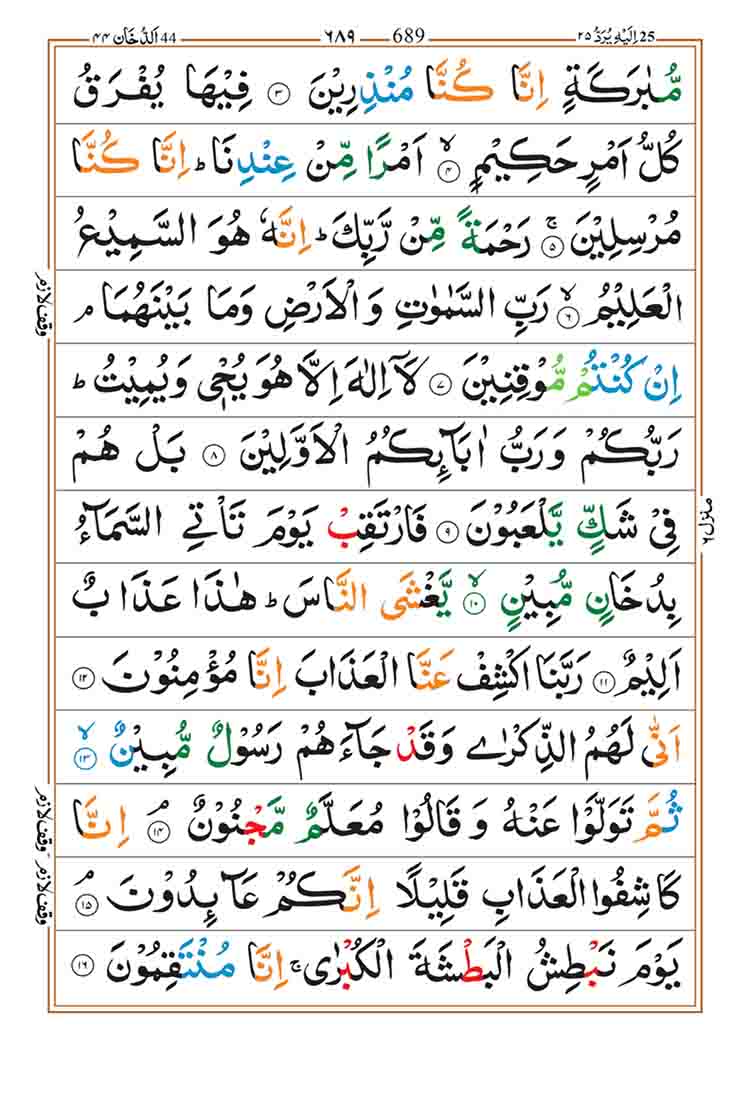 اَلدُّخَان 44 ٤٤
٦٨٩ 689
25 اِلَيْهِ يُرَدُّ ٢٥
مُّبٰرَكَةٍ اِنَّا كُنَّا مُنْذِرِيْنَ ۝٣ فِيْهَا يُفْرَقُ
كُلُّ اَمْرٍ حَكِيْمٍ ۝٤ۙ اَمْرًا مِّنْ عِنْدِنَا ؕ اِنَّا كُنَّا
مُرْسِلِيْنَ ۝٥ۚ رَحْمَةً مِّنْ رَّبِّكَ ؕ اِنَّهٗ هُوَ السَّمِيْعُ
الْعَلِيْمُ ۝٦ۙ رَبِّ السَّمٰوٰتِ وَالْاَرْضِ وَمَا بَيْنَهُمَا ۘ
اِنْ كُنْتُمْ مُّوْقِنِيْنَ ۝٧ لَاۤ اِلٰهَ اِلَّا هُوَ يُحْيٖ وَيُمِيْتُ ؕ
رَبُّكُمْ وَرَبُّ اٰبَآئِكُمُ الْاَوَّلِيْنَ ۝٨ بَلْ هُمْ
فِيْ شَكٍّ يَّلْعَبُوْنَ ۝٩ فَارْتَقِبْ يَوْمَ تَاْتِي السَّمَآءُ
بِدُخَانٍ مُّبِيْنٍ ۝١٠ۙ يَّغْشَى النَّاسَ ؕ هٰذَا عَذَابٌ
اَلِيْمٌ ۝١١ رَبَّنَا اكْشِفْ عَنَّا الْعَذَابَ اِنَّا مُؤْمِنُوْنَ ۝١٢
اَنّٰى لَهُمُ الذِّكْرٰى وَقَدْ جَآءَهُمْ رَسُوْلٌ مُّبِيْنٌ ۝١٣ۙ
ثُمَّ تَوَلَّوْا عَنْهُ وَقَالُوْا مُعَلَّمٌ مَّجْنُوْنٌ ۝١٤ۘ اِنَّا
كَاشِفُوا الْعَذَابِ قَلِيْلًا اِنَّكُمْ عَآئِدُوْنَ ۝١٥ۘ
يَوْمَ نَبْطِشُ الْبَطْشَةَ الْكُبْرٰى ۚ اِنَّا مُنْتَقِمُوْنَ ۝١٦
وقف لازم
منزل ٦
وقف لازم
وقف لازم